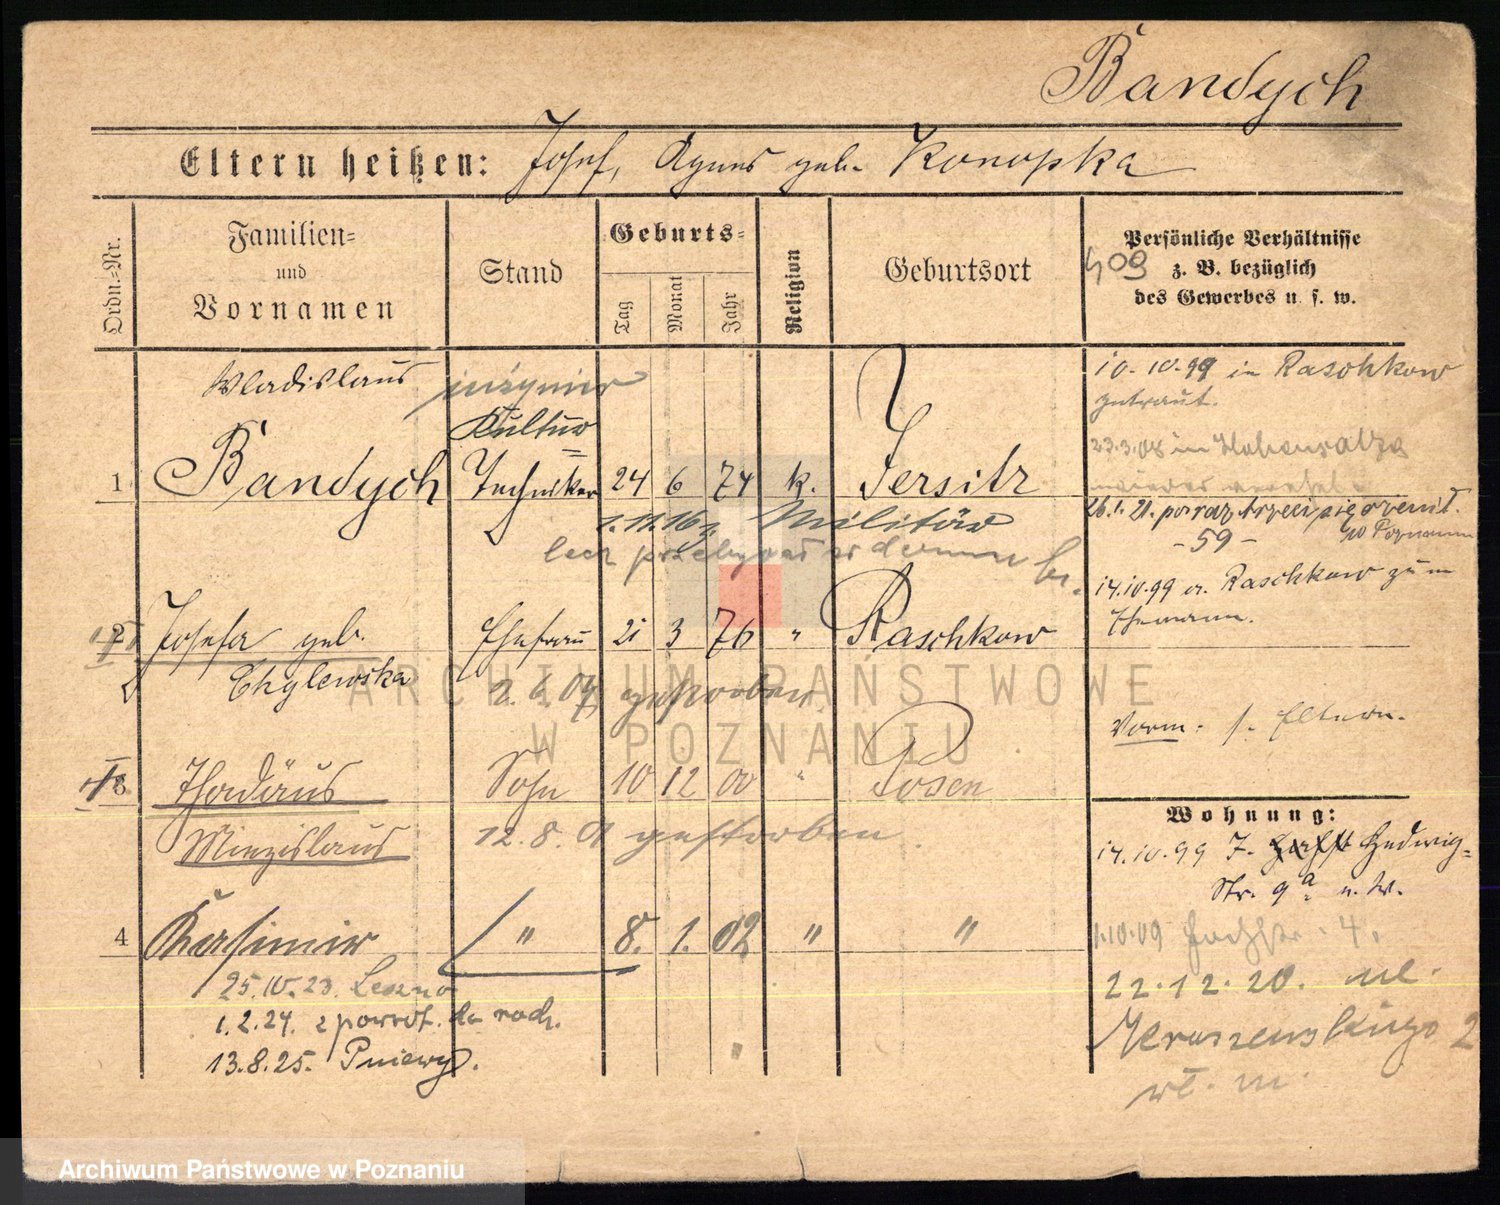 Bandych
Eltern heißen: Josef, Agnes geb. Konopka
Ordn.=Nr.
Familien=
und
Vornamen
Stand
Geburts=
Tag
Monat
Jahr
Religion
Geburtsort
Persönliche Verhältnisse
z. B. bezüglich
des Gewerbes u. s. w.
409
Wladislaus
inżynier
Kultur
=
1 Bandych Techniker 24 6 74 k. Jersitz
1.11.16 z Militär
lecz przebywał w domu
10.10.99 in Raschkow
getraut.
23.3.08 in Hohensalza
26.1.21. poraz trzeci się ożenił.
w Poznaniu
-59-
2 Josefa geb. Ehefrau 21 3 76 " Raschkow
Chylewska
2.6.07 gestorben
14.10.99 v. Raschkow zum
Ehemann.
Vorm. s. Eltern.
3 Thadäus Sohn 10 12 00 " Posen
Miezislaus
12.8.01 gestorben.
4 Kasimir " 8. 1. 02 " "
25.IV.23. Leszno
1.2.24. z powrót. do rodz.
13.8.25. Pniewy.
Wohnung:
14.10.99 J. Hedwig=
Str. 9a u. W.
1.10.09 4.
22.12.20. ul.
Kraszewskiego 2
wł. m.
ARCHIWUM PAŃSTWOWE
W POZNANIU
Archiwum Państwowe w Poznaniu